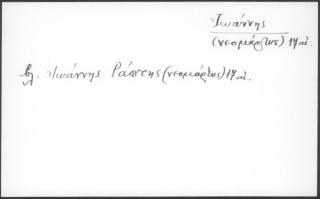 Ἰωάννης
(νεομάρτυς) 17 αἰ.
βλ. Ἰωάννης Ράπτης (νεομάρτυς) 17 αἰ.